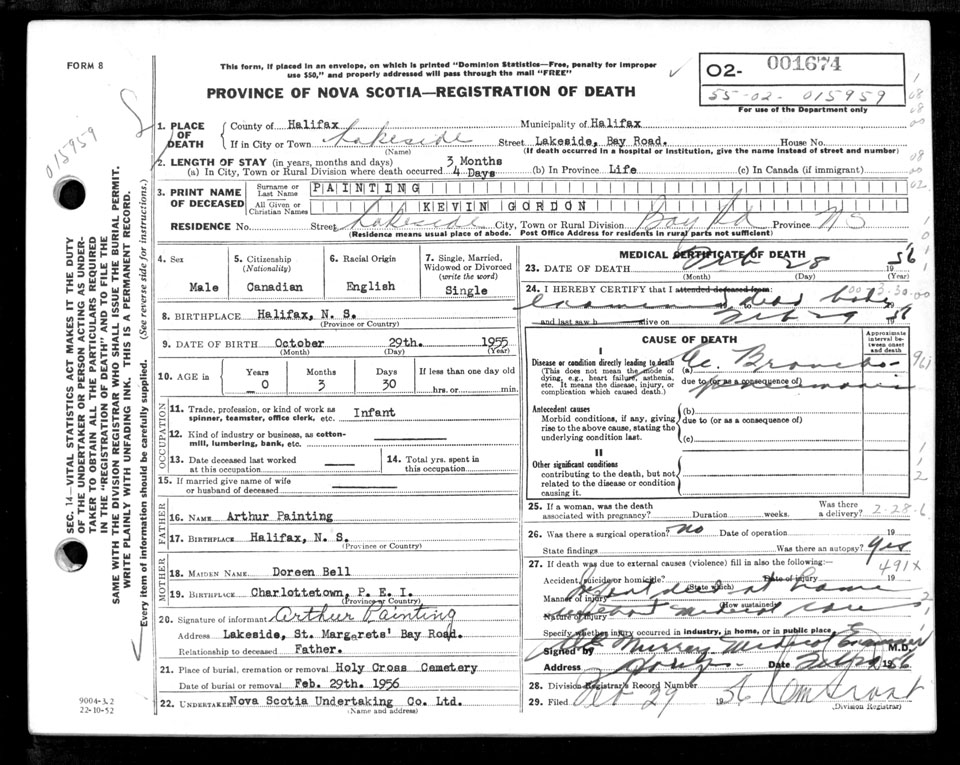 FORM 8
This form, if placed in an envelope, on which is printed "Dominion Statistics—Free, penalty for improper
use $50," and properly addressed will pass through the mail "FREE"
O2- 001674
55-02-015959
For use of the Department only
PROVINCE OF NOVA SCOTIA—REGISTRATION OF DEATH
015959
1. PLACE OF DEATH
County of Halifax Municipality of Halifax
If in City or Town Lakeside Street Lakeside, Bay Road. House No.
(Name) (If death occurred in a hospital or institution, give the name instead of street and number)
2. LENGTH OF STAY (in years, months and days) 3 Months
(a) In City, Town or Rural Division where death occurred 4 Days (b) In Province Life (c) In Canada (if immigrant)
3. PRINT NAME OF DECEASED
Surname or Last Name PAINTING
All Given or Christian Names KEVIN GORDON
RESIDENCE No. Street Lakeside City, Town or Rural Division Bay Rd Province N S
(Residence means usual place of abode. Post Office Address for residents in rural parts not sufficient)
4. Sex
Male
5. Citizenship
(Nationality)
Canadian
6. Racial Origin
English
7. Single, Married, Widowed or Divorced
(write the word)
Single
8. BIRTHPLACE Halifax, N. S.
(Province or Country)
9. DATE OF BIRTH October 29th. 1955
(Month) (Day) (Year)
10. AGE in
Years Months Days If less than one day old
0 3 30 hrs. or min.
OCCUPATION
11. Trade, profession, or kind of work as Infant
spinner, teamster, office clerk, etc.
12. Kind of industry or business, as cotton-
mill, lumbering, bank, etc.
13. Date deceased last worked
at this occupation
14. Total yrs. spent in
this occupation
15. If married give name of wife
or husband of deceased
FATHER
16. NAME Arthur Painting
17. BIRTHPLACE Halifax, N. S.
(Province or Country)
MOTHER
18. MAIDEN NAME Doreen Bell
19. BIRTHPLACE Charlottetown, P. E. I.
(Province or Country)
20. Signature of informant Arthur Painting
Address Lakeside, St. Margarets' Bay Road.
Relationship to deceased Father.
21. Place of burial, cremation or removal Holy Cross Cemetery
Date of burial or removal Feb. 29th. 1956
22. UNDERTAKER Nova Scotia Undertaking Co. Ltd.
(Name and address)
MEDICAL CERTIFICATE OF DEATH
23. DATE OF DEATH Feb 28 1956
(Month) (Day) (Year)
24. I HEREBY CERTIFY that I attended deceased from:
examined dead body
and last saw h alive on Feb 29 1956
CAUSE OF DEATH
Approximate interval between onset and death
I
Disease or condition directly leading to death
(This does not mean the mode of
dying, e.g., heart failure, asthenia,
etc. It means the disease, injury, or
complication which caused death.)
(a) Ac. Broncho-
due to (or as a consequence of)
pneumonia
Antecedent causes
Morbid conditions, if any, giving
rise to the above cause, stating the
underlying condition last.
(b)
due to (or as a consequence of)
(c)
II
Other significant conditions
contributing to the death, but not
related to the disease or condition
causing it.
25. If a woman, was the death Was there
associated with pregnancy? Duration weeks. a delivery? 2-28-6
26. Was there a surgical operation? no Date of operation 19
State findings Was there an autopsy? Yes
27. If death was due to external causes (violence) fill in also the following: 491X
Accident, suicide or homicide? Date of injury 19
(State which)
Infant died at home
Manner of injury
(How sustained)
without medical care
Nature of injury
Specify whether injury occurred in industry, in home, or in public place
Signed by Murray Medical Examiner M.D.
Address Date Feb 29 1956
28. Division Registrar's Record Number
29. Filed Feb 29 1956
(Division Registrar)
SEC. 14—VITAL STATISTICS ACT MAKES IT THE DUTY
OF THE UNDERTAKER OR PERSON ACTING AS UNDER-
TAKER TO OBTAIN ALL THE PARTICULARS REQUIRED
IN THE "REGISTRATION OF DEATH" AND TO FILE THE
SAME WITH THE DIVISION REGISTRAR WHO SHALL ISSUE THE BURIAL PERMIT.
WRITE PLAINLY WITH UNFADING INK. THIS IS A PERMANENT RECORD.
Every item of information should be carefully supplied. (See reverse side for instructions.)
9004-3.2
22-10-52